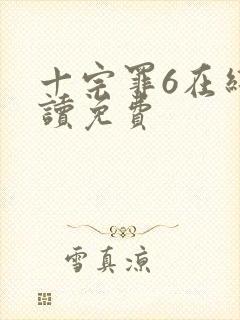 十宗罪6在
讀免費
雪真凉